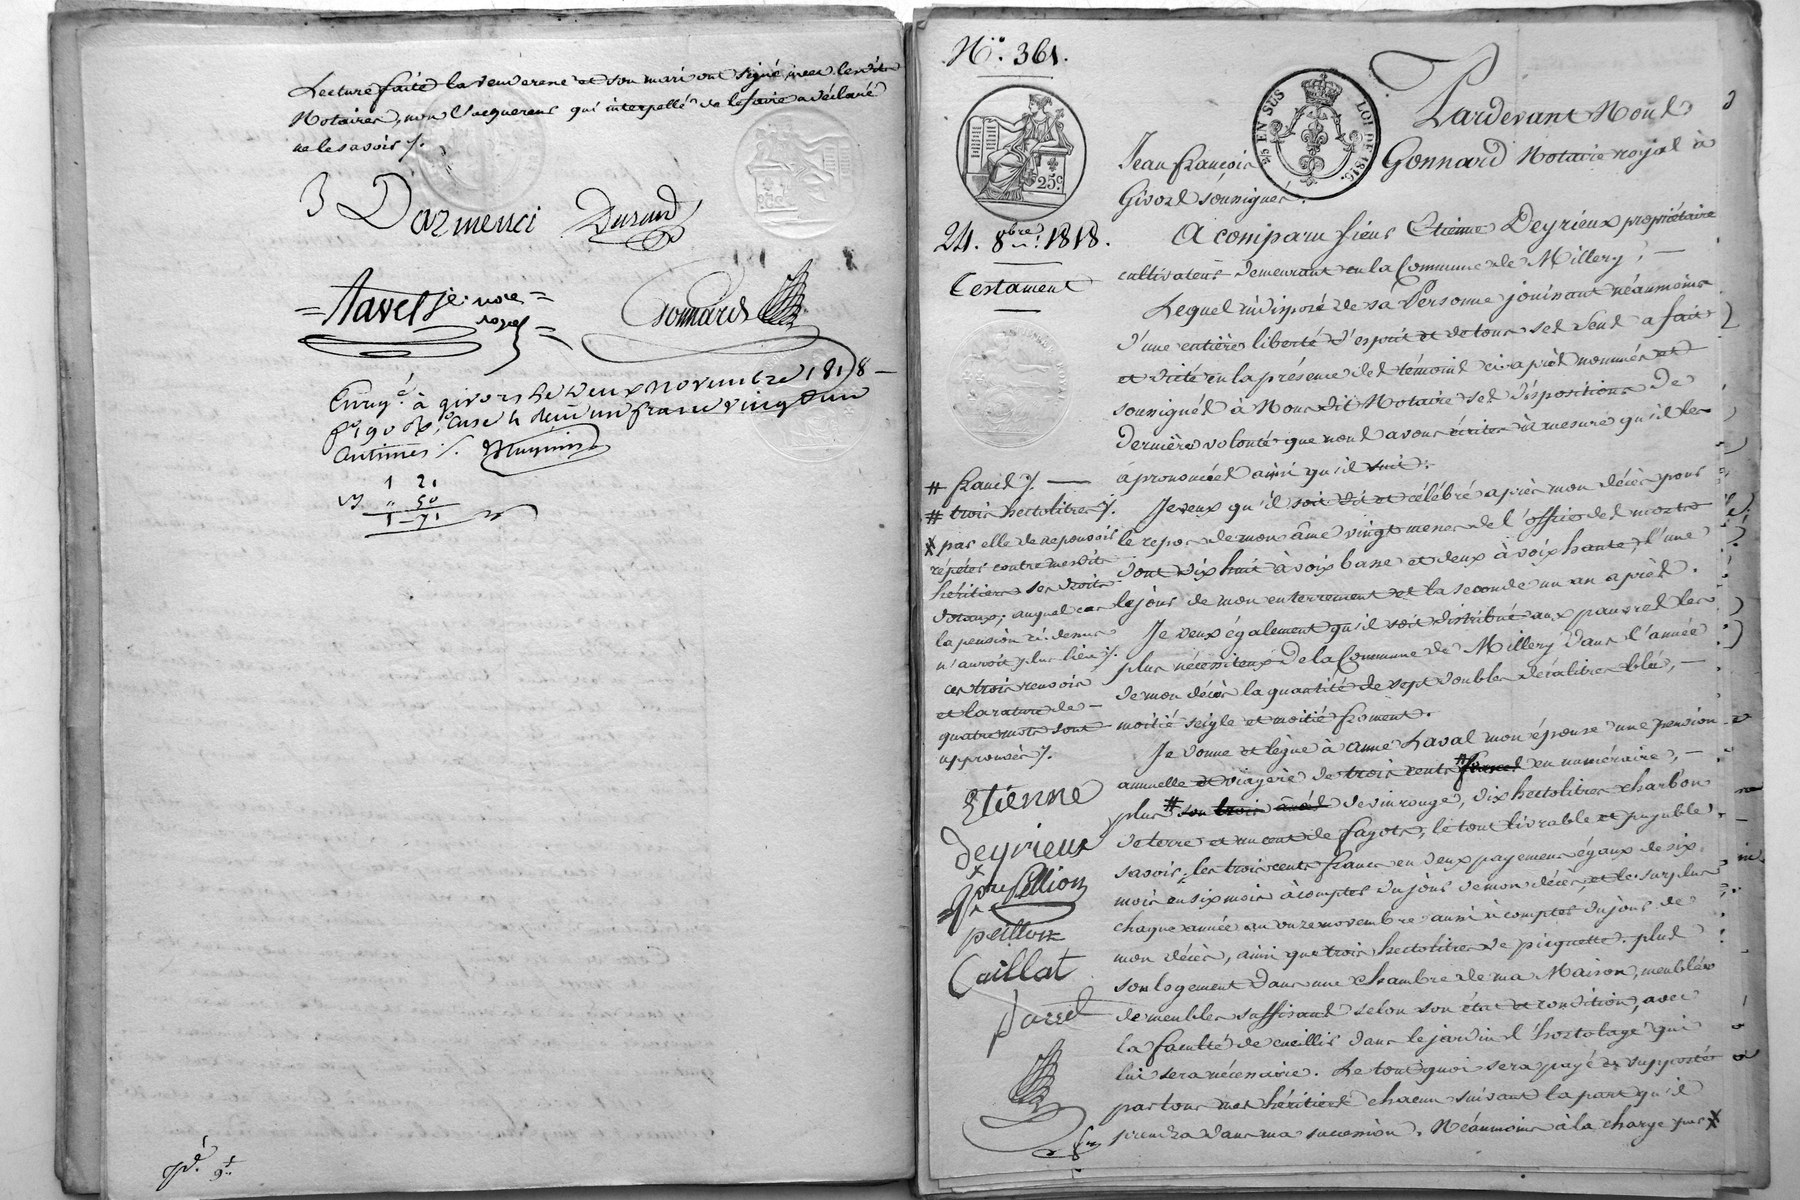 Lecture faite la venderesse et son mari ont signé avec lesdits
Notaires, non l'acquereur qui interpellé de le faire a déclaré
ne le savoir /.
Darmenci Durand
Tavel je. nore
royal
Gonnard
Enregé à givors le deux novembre 1818
fo 90 Ro Case 4 reçu un franc vingt un
Centimes /.
1 21
" 50
1 71
No. 361.
25c EN SUS LOI DE 1816.
25c
24. 8bre 1818.
Testament
Pardevant Nous
Jean françois Gonnard Notaire royal à
Givors soussigné.
A comparu sieur Etienne Deyrieux propriétaire
cultivateur demeurant en la Commune de Millery,
Lequel indisposé de sa Personne jouissant néanmoins
d'une entière liberté d'esprit et de tous ses sens a fait
et dicté en la présence des témoins ci après nommés et
soussignés à Nous dit Notaire ses dispositions de
dernière volonté que nous avons écrites à mesure qu'il les
a prononcées ainsi qu'il suit.
Je veux qu'il soit dit et célébré après mon décès pour
le repos de mon âme vingt messes de l'office des morts
dont dix huit à voix basse et deux à voix haute, l'une
le jour de mon enterrement et la seconde un an après.
Je veux également qu'il soit distribué aux pauvres les
plus nécessiteux de la Commune de Millery dans l'année
de mon décès la quantité de sept doubles décalitres blé,
moitié seigle et moitié froment.
Je donne et lègue à anne Laval mon épouse une pension
annuelle et viagère de trois cents # francs en numéraire,
plus # son trois ânées de vin rouge, dix hectolitres charbon
de terre et un cent de fagots, le tout livrable et payable
savoir, les trois cents francs en deux payemens égaux de six
mois en six mois à compter du jour de mon décès, et le surplus
chaque année au onze novembre aussi à compter du jour de
mon décès, ainsi que trois hectolitres de picquette. plus
son logement dans une chambre de ma Maison, meublée
de meubles suffisans selon son état et condition, avec
la faculté de cueillir dans le jardin l'hortolage qui
lui sera nécessaire. Le tout quoi sera payé et supporté
par tous mes héritiers chacun suivant la part qu'il
prendra dans ma succession. Néanmoins à la charge par X
# francs /.
# trois hectolitres /.
X par elle de ne pouvoir
répéter contre mesdits
héritiers ses droits
dotaux, auquel cas
la pension ci-dessus
n'auroit plus lieu /.
ces trois renvois
et la rature de
quatre mots sont
approuvés /.
Etienne
deyrieux
pre Pellion
peillon
Caillat